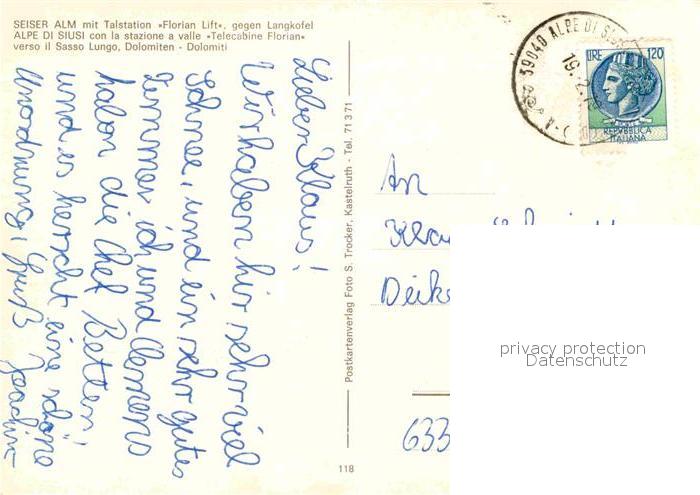 SEISER ALM mit Talstation »Florian Lift«, gegen Langkofel
ALPE DI SIUSI con la stazione a valle »Telecabine Florian«
verso il Sasso Lungo, Dolomiten - Dolomiti
Lieber Klaus!
Wir haben hir sehr viel
Schnee, und ein sehr gutes
Zimmer, ich und Clemens
haben die Chef Betten!
und es herscht eine schöne
Unordnung, Gruß Joachim
Postkartenverlag Foto S. Trocker, Kastelruth - Tel. 71371
118
39040 ALPE DI SIUSI
LIRE 120
REPVBBLICA
ITALIANA
An
633
privacy protection
Datenschutz